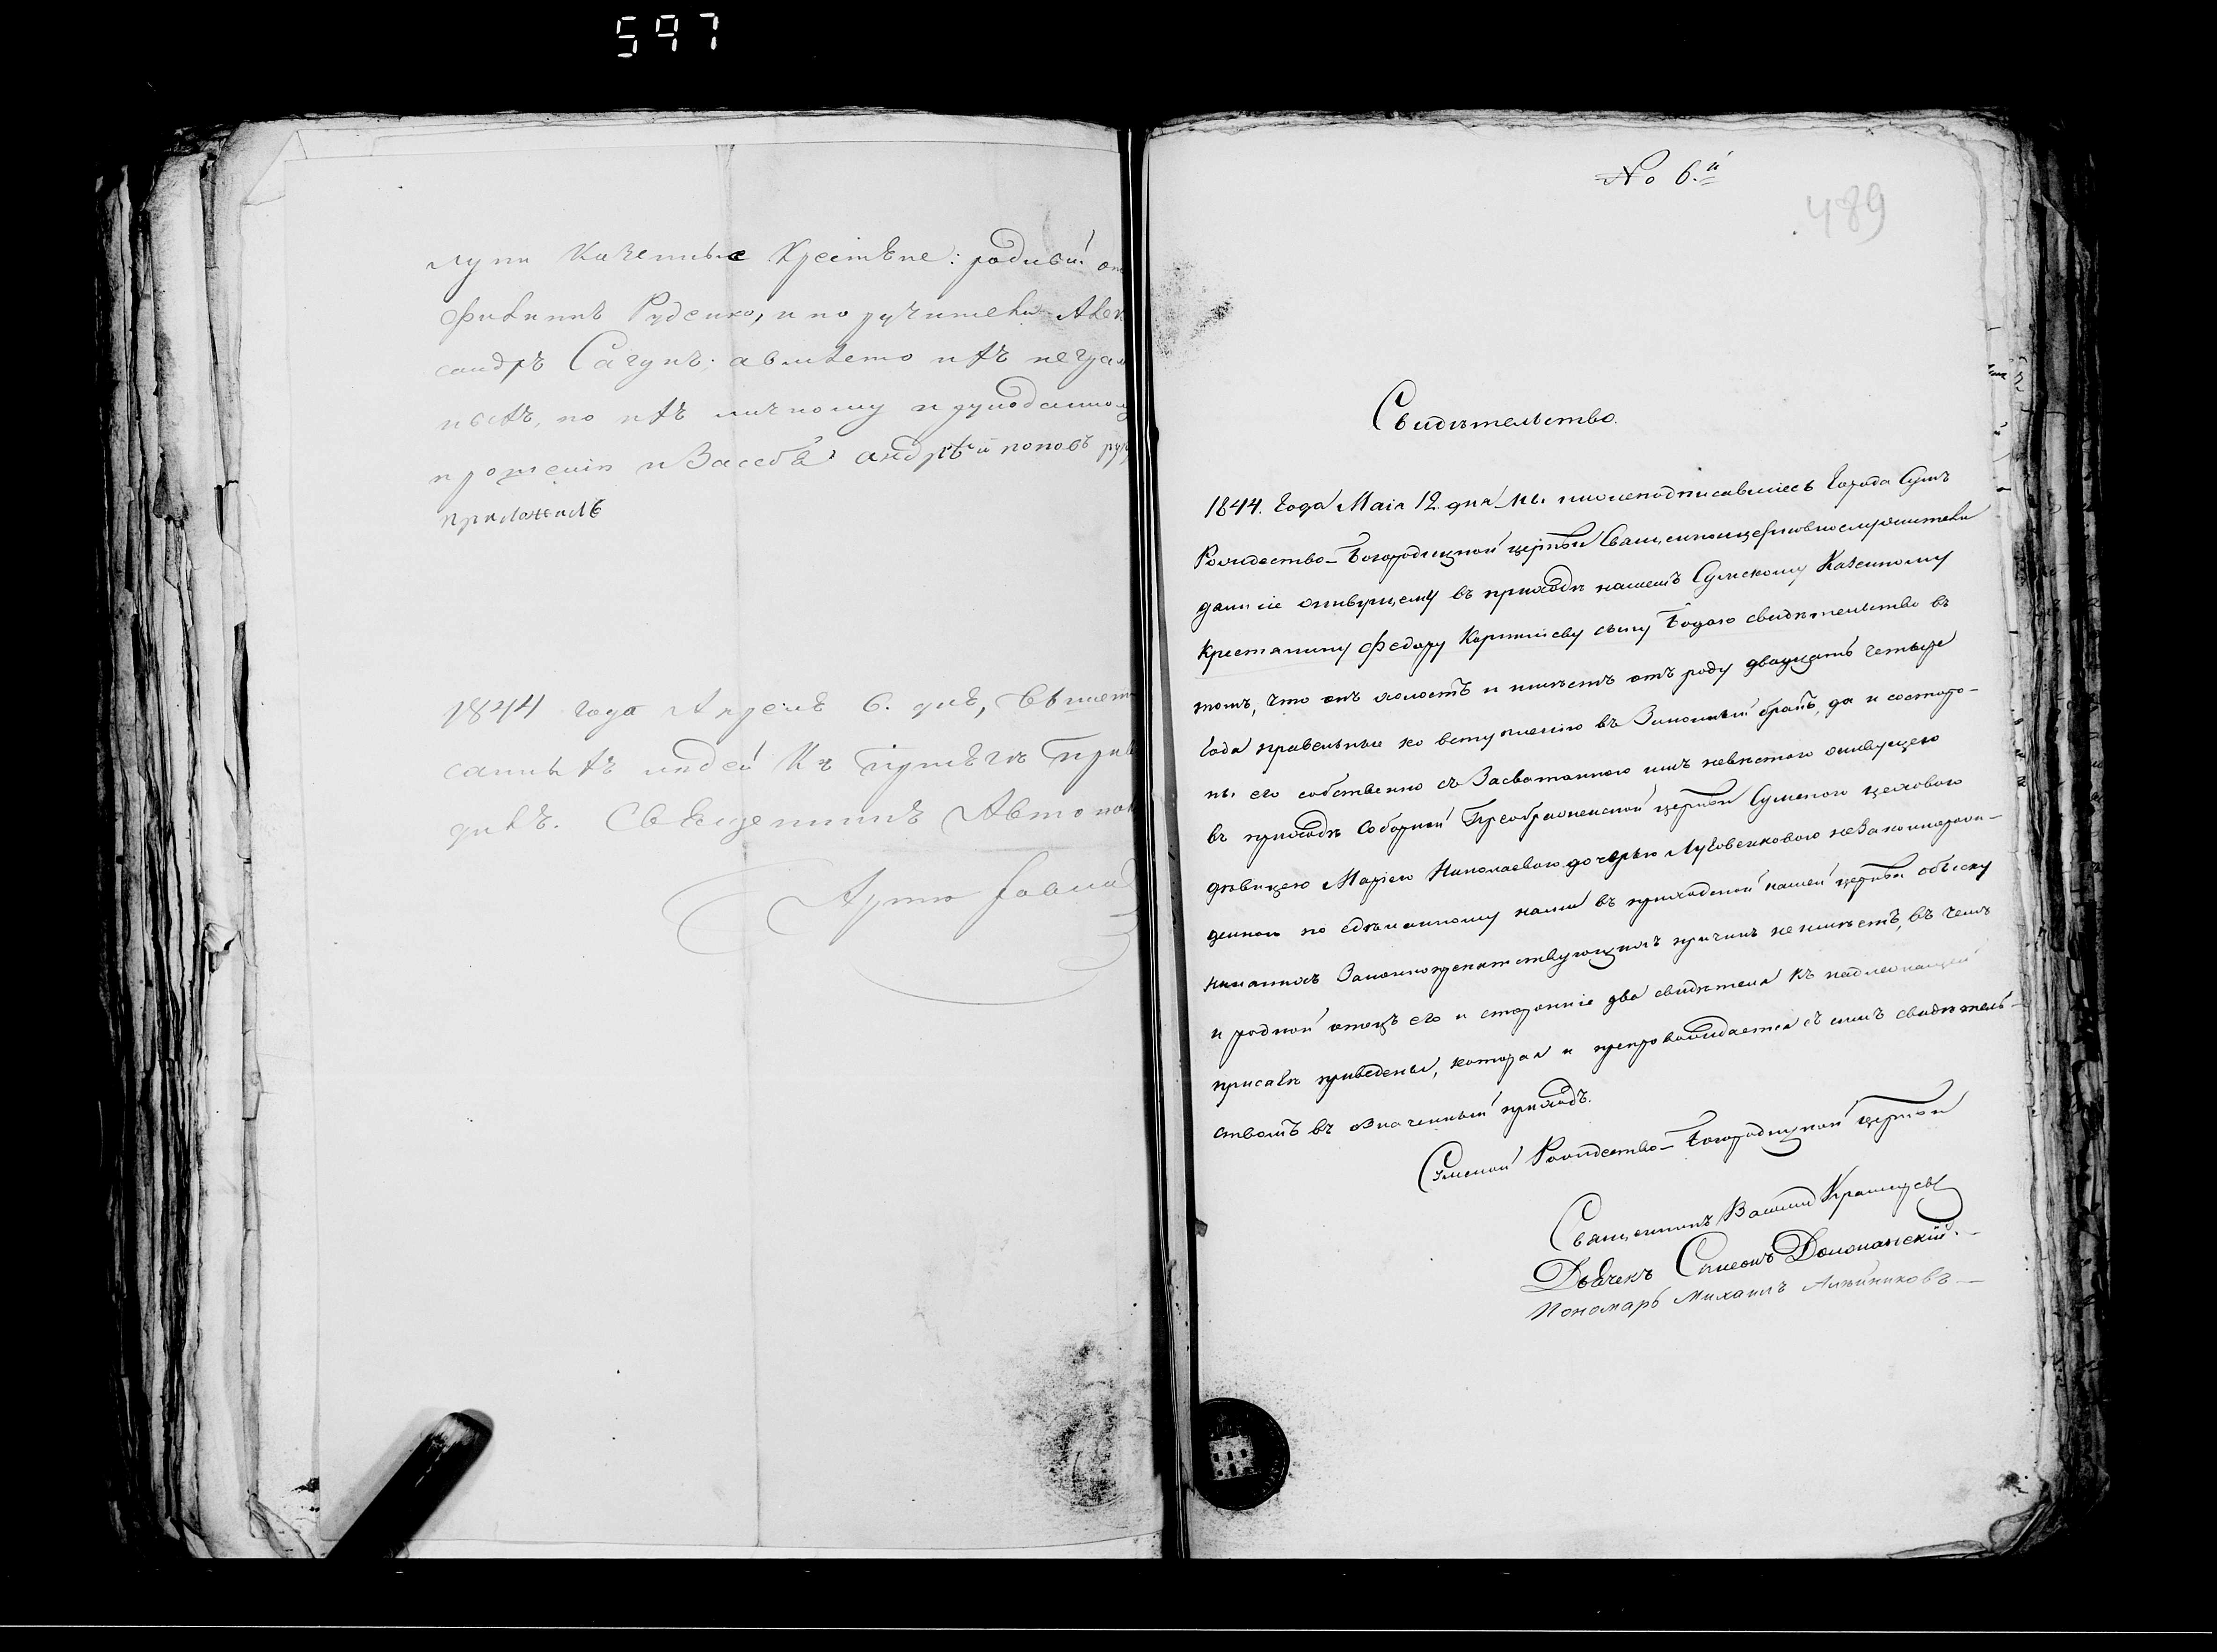 597
лупи Казенные Крестьяне: родный от
Филиппъ Руденко, и поручители Алек
сандръ Сагунъ. авместо ихъ неграм
ныхъ, по ихъ личному и рукоданному
прошенію иЗасебя андрѣй поповъ рук
приложилъ
1844 года Апреля 6. дня, вышепи
санныхъ людей Къ присягѣ приво
дилъ. Священникъ Автоном
№ 6.й
489
Свидѣтельство.
1844. Года Маія 12. дня мы нижеподписавшіесъ Города Сумъ
Рождество-Богородицкой церкви Священноицерковнослужители
дали сіе живущему въ приходѣ нашемъ Сумскому Казенному
крестянину Федору Корнѣеву сыну свидѣтельство въ
томъ, что онъ холостъ и имѣетъ отъ роду двадцать четыре
Года правельные ко вступленію въ Законный бракъ, да и со сторо-
ны его собственно съ Засватанною имъ невѣстою живущею
въ приходѣ Соборной Преображенской церкви Сумскою цеховою
дѣвицею Маріею Николаевою дочерью Луговенковою
по сдѣланному нами въ приходской нашей церкви обыску
никакихъ Законнопрепятствующихъ причинъ не имѣетъ, въ чемъ
и родной отецъ его и сторонніе два свидѣтеля къ надлежащей
присягѣ приведены, которая и препровождается съ симъ свидѣтель-
ствомъ въ означенный приходъ.
Сумской Рождество-Богородицкой церкви
Священникъ Василій
Дьячекъ Симеонъ Доможанскій.
Пономарь Михаилъ Алейниковъ